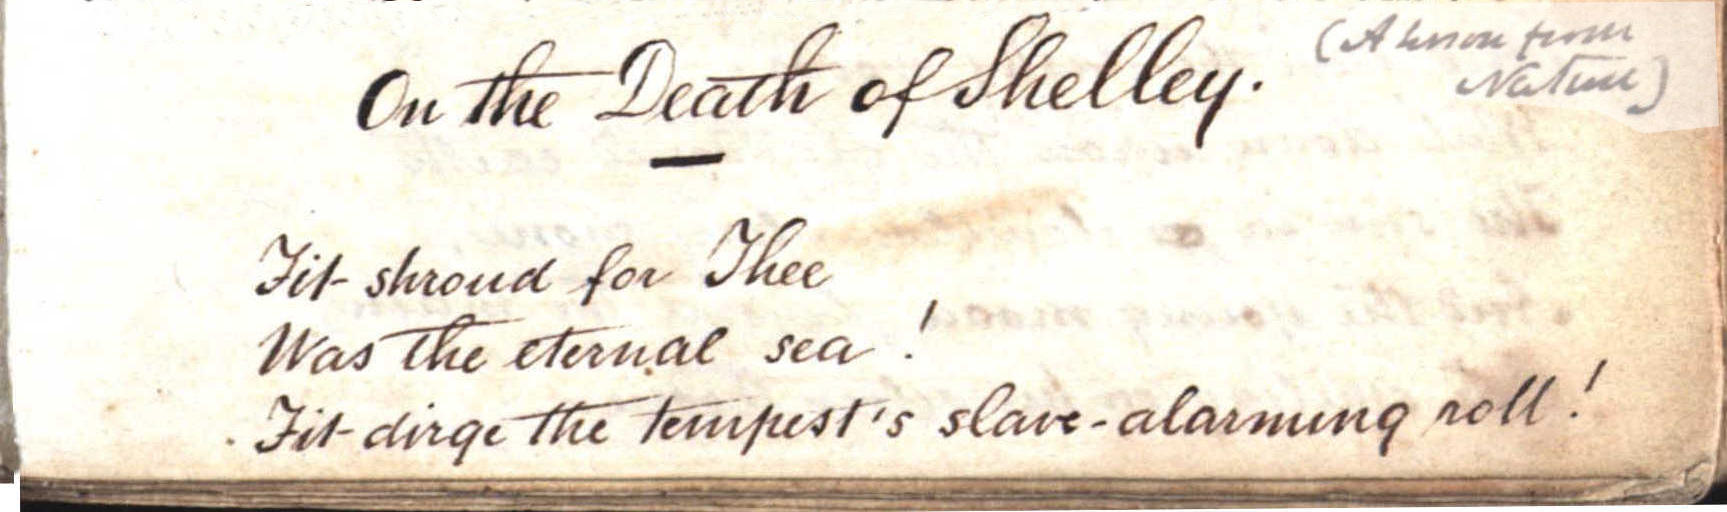 On the Death of Shelley.
(A lesson from
Nature)
Fit shroud for Thee
Was the eternal sea !
Fit dirge the tempest's slave-alarming roll !